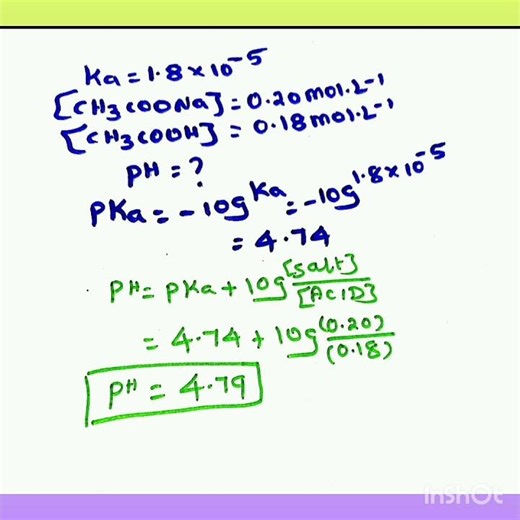 Ka = 1.8 × 10⁻⁵
[CH3COONa] = 0.20 mol.L⁻¹
[CH3COOH] = 0.18 mol.L⁻¹
PH = ?
PKa = -log Ka = -log 1.8 × 10⁻⁵
= 4.74
PH = PKa + log [Salt]/[ACID]
= 4.74 + log (0.20)/(0.18)
PH = 4.79
InShOt